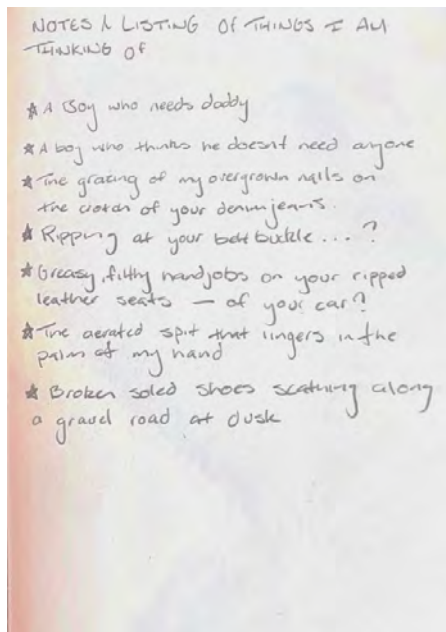 NOTES & LISTING OF THINGS I AM
THINKING OF
★ A Boy who needs daddy
★ A boy who thinks he doesnt need anyone
★ The grazing of my overgrown nails on
the crotch of your denim jeans.
★ Ripping at your belt buckle...?
★ Greasy, filthy handjobs on your ripped
leather seats — of your car?
★ The aerated spit that lingers in the
palm of my hand
★ Broken soled shoes scathing along
a gravel road at dusk